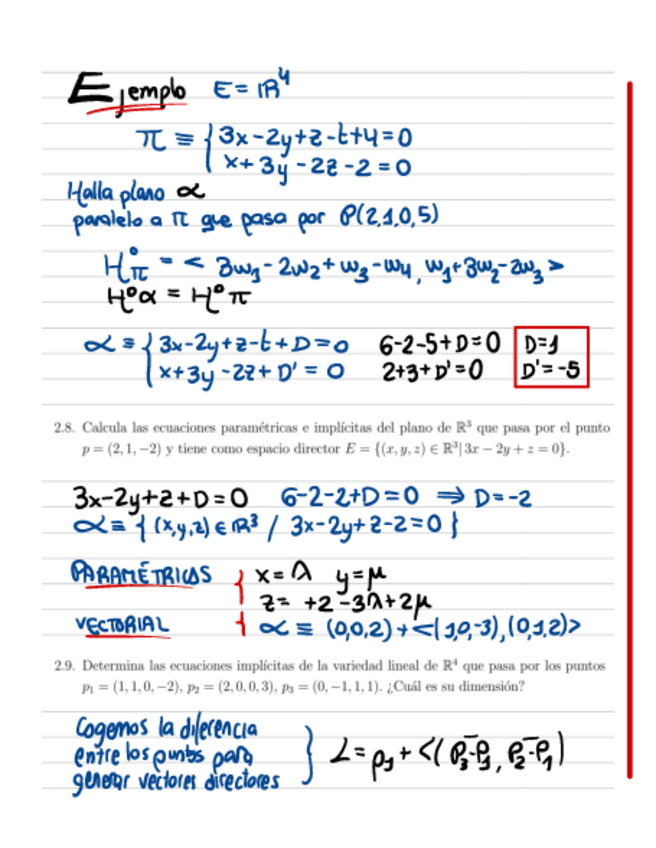 Ejemplo E = ℝ⁴
π ≡ { 3x - 2y + z - t + 4 = 0
x + 3y - 2z - 2 = 0
Halla plano α
paralelo a π que pasa por P(2,1,0,5)
H°π = < 3w₁ - 2w₂ + w₃ - w₄, w₁ + 3w₂ - 2w₃ >
H°α = H°π
α ≡ { 3x - 2y + z - t + D = 0 6 - 2 - 5 + D = 0 D = 1
x + 3y - 2z + D' = 0 2 + 3 + D' = 0 D' = -5
2.8. Calcula las ecuaciones paramétricas e implícitas del plano de ℝ³ que pasa por el punto
p = (2, 1, −2) y tiene como espacio director E = {(x, y, z) ∈ ℝ³| 3x − 2y + z = 0}.
3x - 2y + z + D = 0 6 - 2 - 2 + D = 0 ⇒ D = -2
α ≡ { (x,y,z) ∈ ℝ³ / 3x - 2y + z - 2 = 0 }
PARAMÉTRICAS } x = λ y = μ
z = +2 - 3λ + 2μ
VECTORIAL { α ≡ (0,0,2) + <(1,0,-3), (0,1,2)>
2.9. Determina las ecuaciones implícitas de la variedad lineal de ℝ⁴ que pasa por los puntos
p₁ = (1, 1, 0, −2), p₂ = (2, 0, 0, 3), p₃ = (0, −1, 1, 1). ¿Cuál es su dimensión?
Cogemos la diferencia
entre los puntos para } L = p₁ + <( P₃-P₁, P₂-P₁ )
generar vectores directores